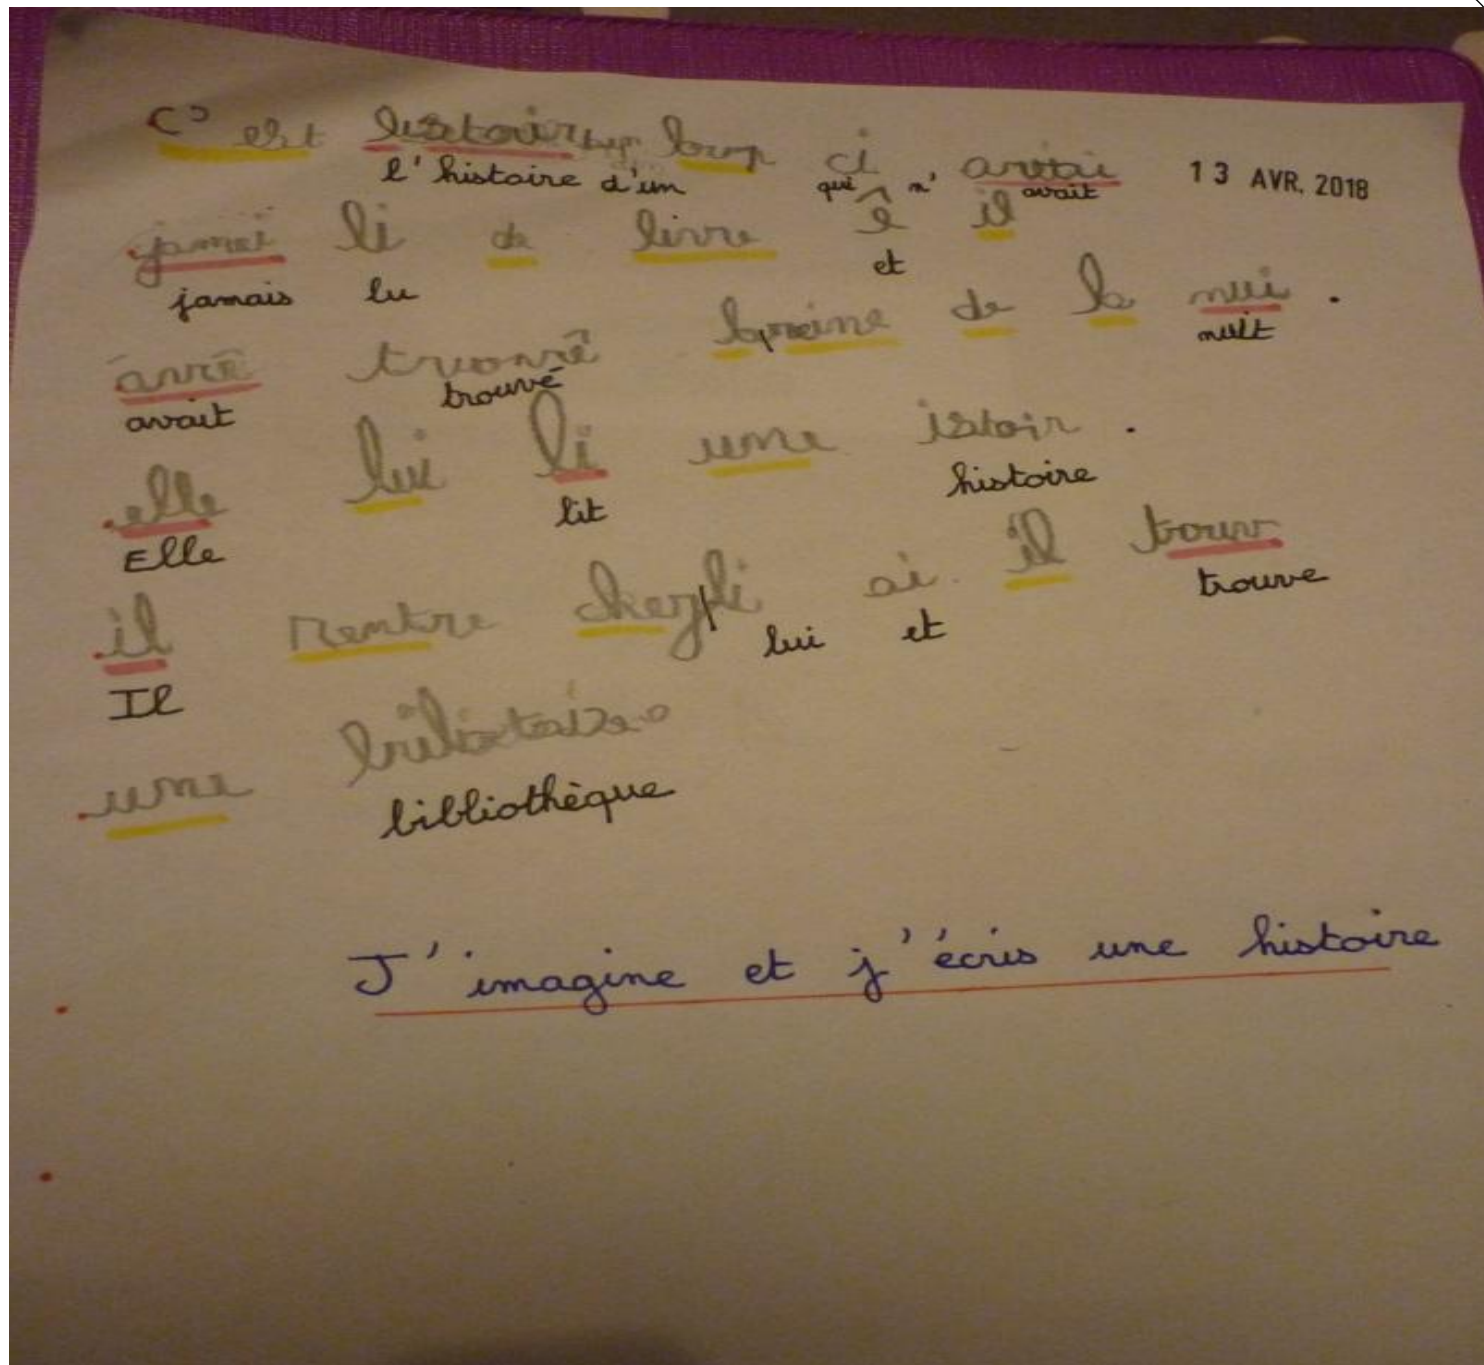 C' est listoir d'un loup ci avai
l'histoire d'un qui n' avait 13 AVR. 2018
jamai li de livre ê il
jamais lu et
avrê truouvê lapreine de la nui .
avait trouvé nuit
elle lui li une istoir .
Elle lit histoire
il rentre chezli ai il trouv
Il lui et trouve
une
bibliothèque
J'imagine et j'écris une histoire